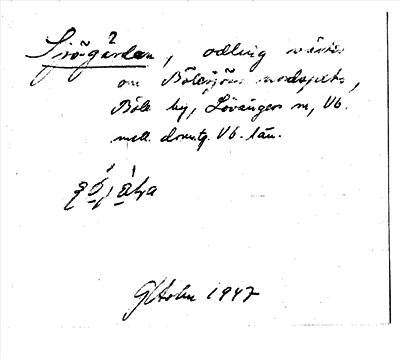 Sjögården, odling väster
om Bölesjöns nordspets,
Böle by, Lövångers sn, Vb.
mell. domsg. Vb. län.
G Holm 1947